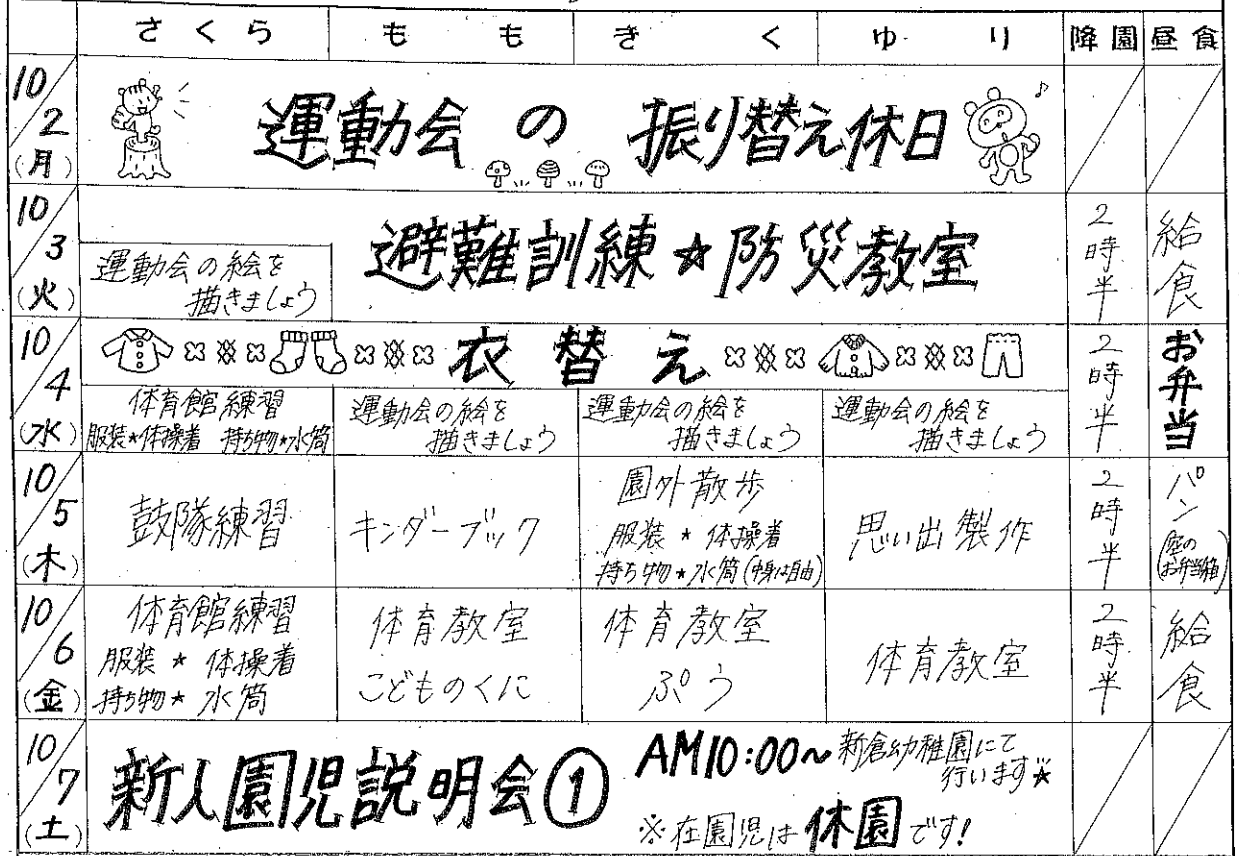 さくら もも きく ゆり 降園 昼食
10/2(月) 運動会の振り替え休日
10/3(火) 避難訓練☆防災教室
運動会の絵を
描きましょう
2時半 給食
10/4(水) 衣替え
体育館練習
服装★体操着 持ち物★水筒
運動会の絵を
描きましょう
運動会の絵を
描きましょう
運動会の絵を
描きましょう
2時半 お弁当
10/5(木)
鼓隊練習
キンダーブック
園外散歩
服装★体操着
持ち物★水筒(中身は自由)
思い出製作
2時半 パン
(空の
お弁当箱)
10/6(金)
体育館練習
服装★体操着
持ち物★水筒
体育教室
こどものくに
体育教室
ぷう
体育教室
2時半 給食
10/7(土) 新入園児説明会①
AM10:00~新倉幼稚園にて
行います☆
※在園児は休園です!